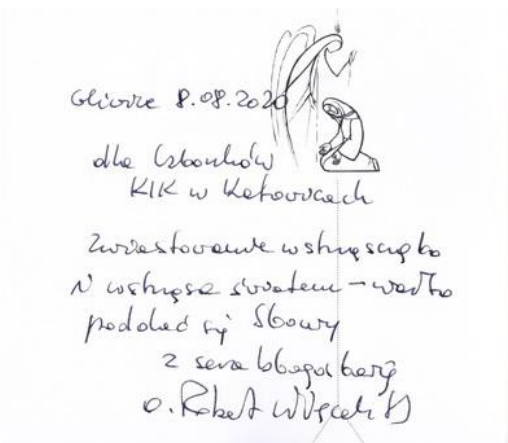 Gliwice 8.08.2020
dla Członków
KIK w Katowicach
Zwiastowanie wstrząsnęło
i wstrząsa światem – warto
poddać się Słowu
z serca błogosławię
o. Robert Więcek SJ